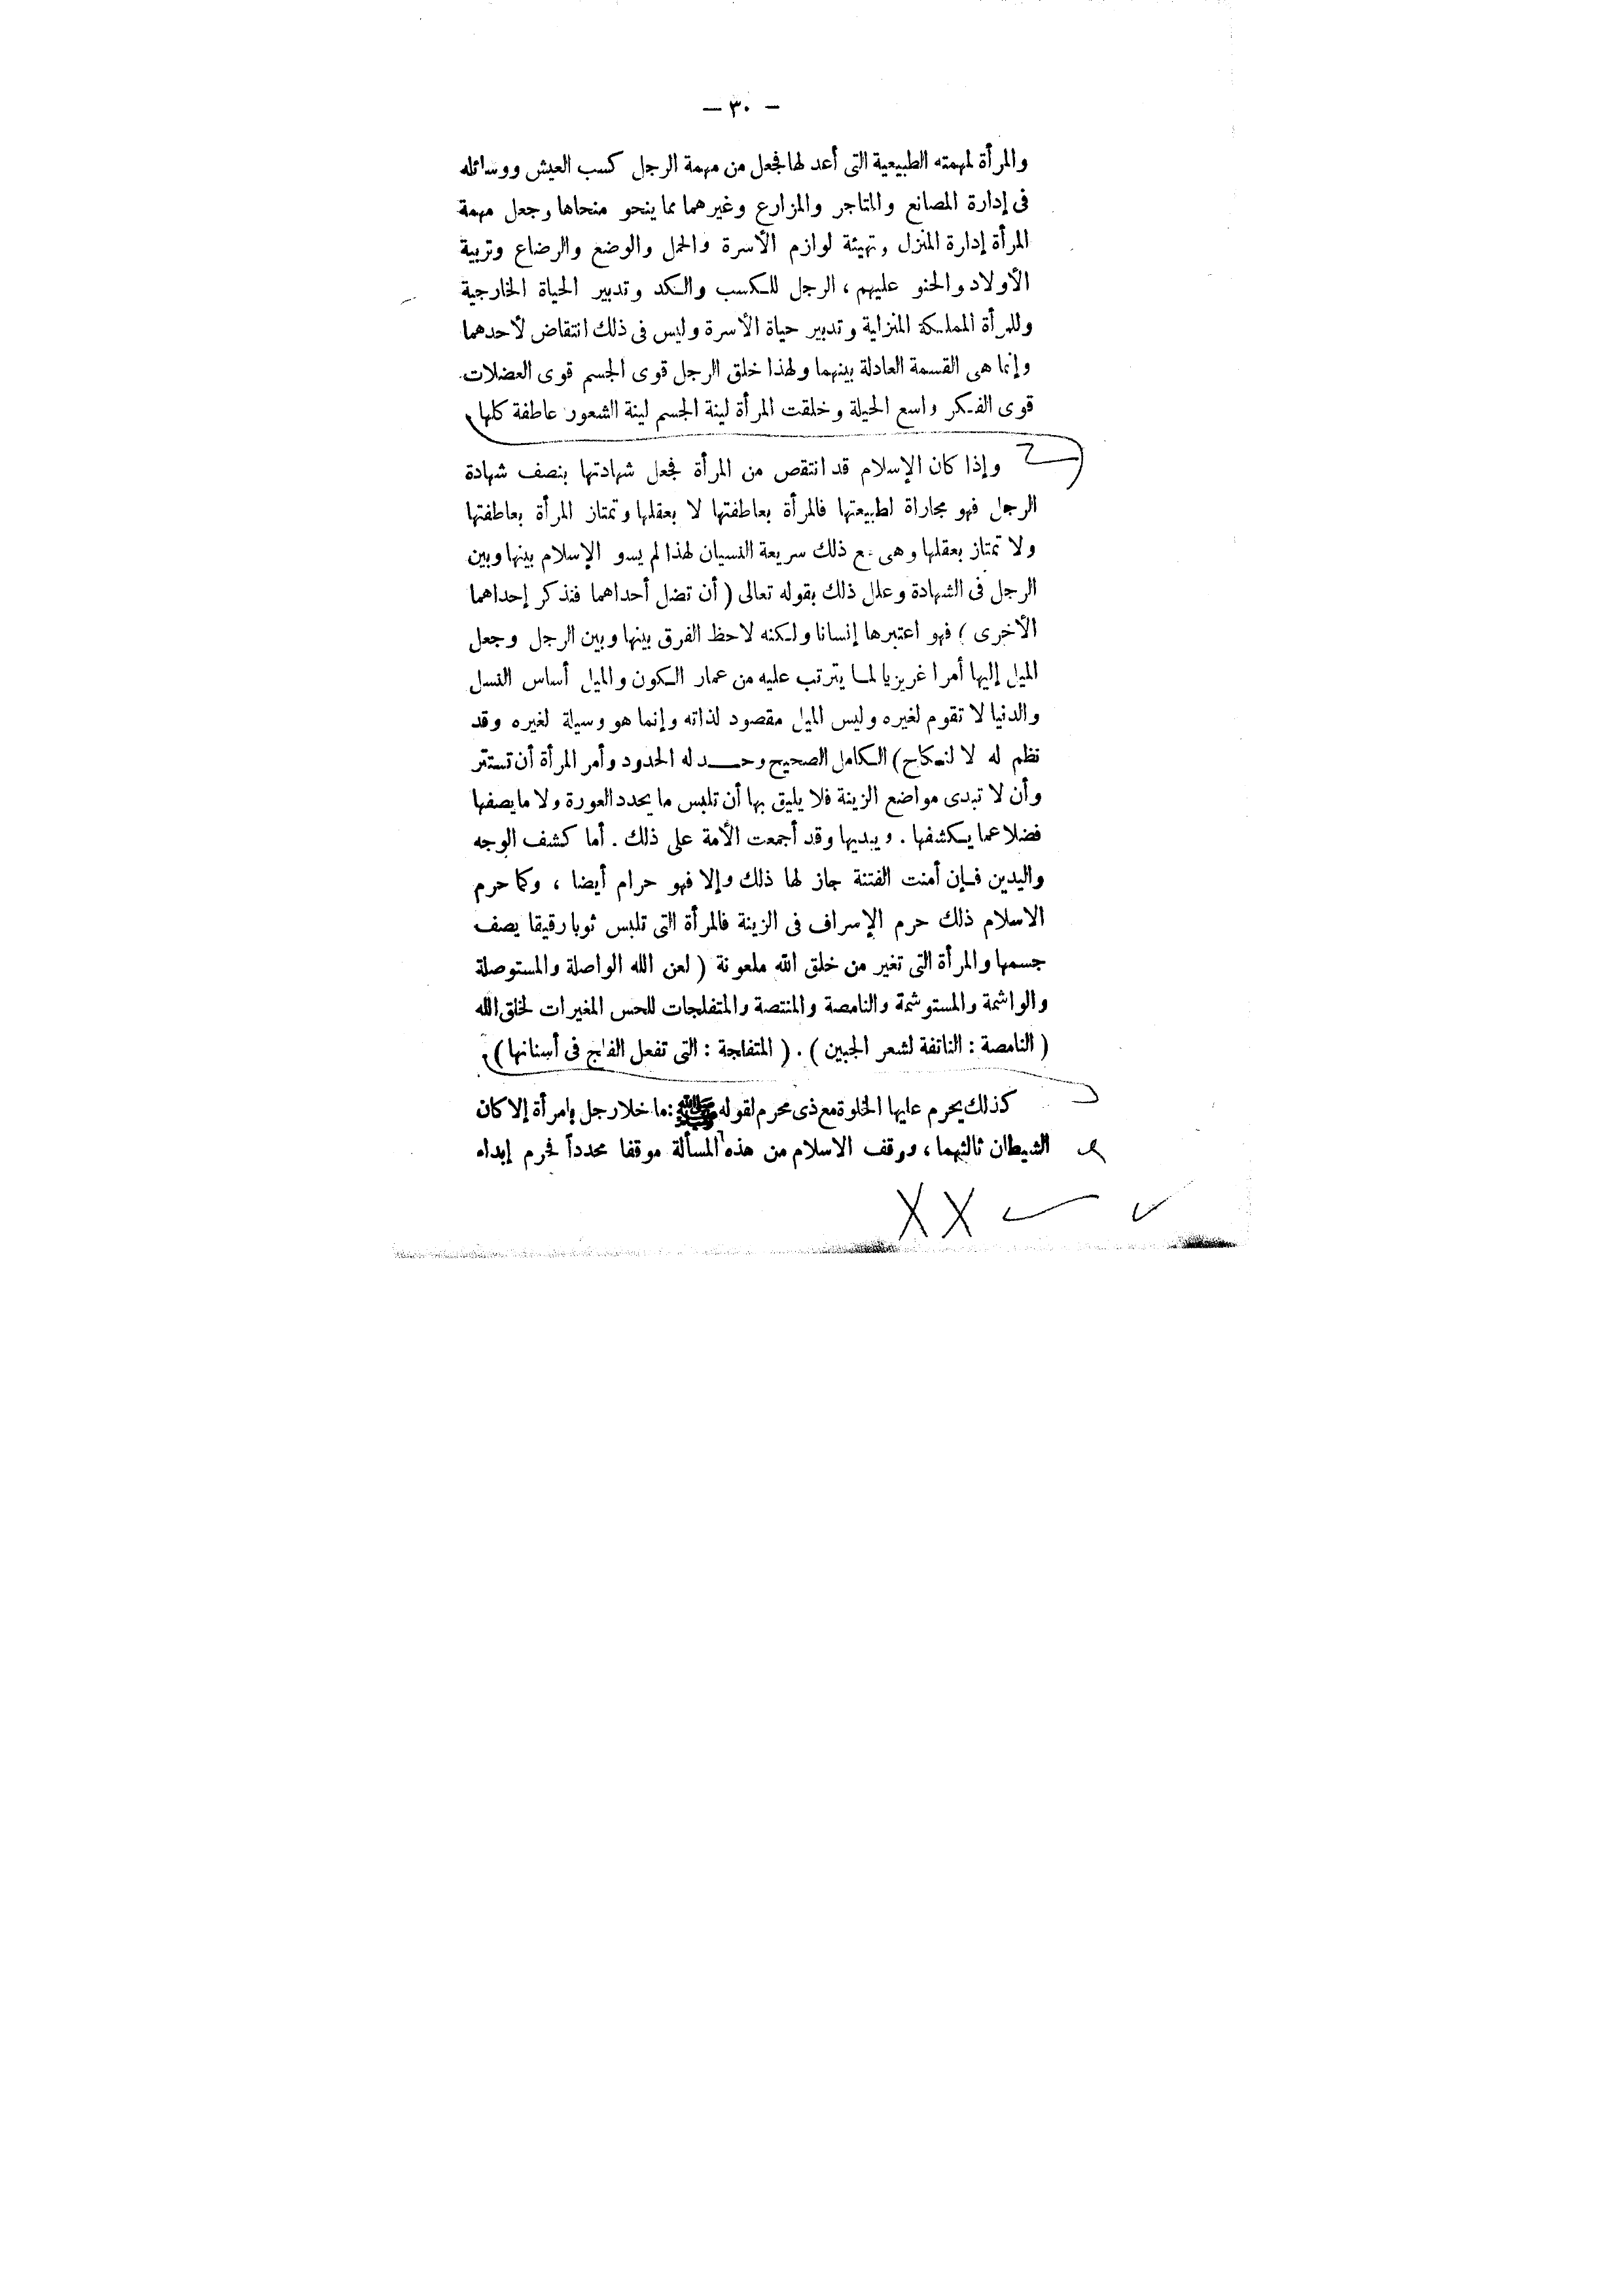 — ٣٠ —
والمرأة لمهمته الطبيعية التى أعد لها فجعل من مهمة الرجل كسب العيش ووسائله
فى إدارة المصانع والمتاجر والمزارع وغيرهما مما ينحو منحاها وجعل مهمة
المرأة إدارة المنزل وتهيئة لوازم الأسرة والحمل والوضع والرضاع وتربية
الأولاد والحنو عليهم ، الرجل للكسب والكد وتدبير الحياة الخارجية
وللمرأة المملكة المنزلية وتدبير حياة الأسرة وليس فى ذلك انتقاض لأحدهما
وإنما هى القسمة العادلة بينهما ولهذا خلق الرجل قوى الجسم قوى العضلات
قوى الفكر واسع الحيلة وخلقت المرأة لينة الجسم لينة الشعور عاطفة كلها
وإذا كان الإسلام قد انتقص من المرأة فجعل شهادتها بنصف شهادة
الرجل فهو مجاراة لطبيعتها فالمرأة بعاطفتها لا بعقلها وتمتاز المرأة بعاطفتها
ولا تمتاز بعقلها وهى مع ذلك سريعة النسيان لهذا لم يسو الإسلام بينها وبين
الرجل فى الشهادة وعلل ذلك بقوله تعالى ( أن تضل أحداهما فتذكر إحداهما
الأخرى ) فهو اعتبرها إنسانا ولكنه لاحظ الفرق بينها وبين الرجل وجعل
الميل إليها أمرا غريزيا لما يترتب عليه من عمار الكون والميل أساس النسل
والدنيا لا تقوم لغيره وليس الميل مقصود لذاته وإنما هو وسيلة لغيره وقد
نظم له لا لنكاح ) الكامل الصحيح وحد له الحدود وأمر المرأة أن تستتر
وأن لا تبدى مواضع الزينة فلا يليق بها أن تلبس ما يحدد العورة ولا ما يصفها
فضلا عما يكشفها . ويبديها وقد أجمعت الأمة على ذلك . أما كشف الوجه
واليدين فإن أمنت الفتنة جاز لها ذلك وإلا فهو حرام أيضا ، وكما حرم
الاسلام ذلك حرم الإسراف فى الزينة فالمرأة التى تلبس ثوبا رقيقا يصف
جسمها والمرأة التى تغير من خلق الله ملعونة ( لعن الله الواصلة والمستوصلة
والواشمة والمستوشمة والنامصة والمنتصة والمتفلجات للحس المغيرات لخلق الله
( النامصة : الناتفة لشعر الجبين ) . ( المتفلجة : التى تفعل الفلج فى أسنانها )
كذلك يحرم عليها الخلوة مع ذى محرم لقوله ﷺ : ما خلا رجل بإمرأة إلا كان
الشيطان ثالثهما ، ووقف الاسلام من هذه المسألة موقفا محدداً فحرم إبداء